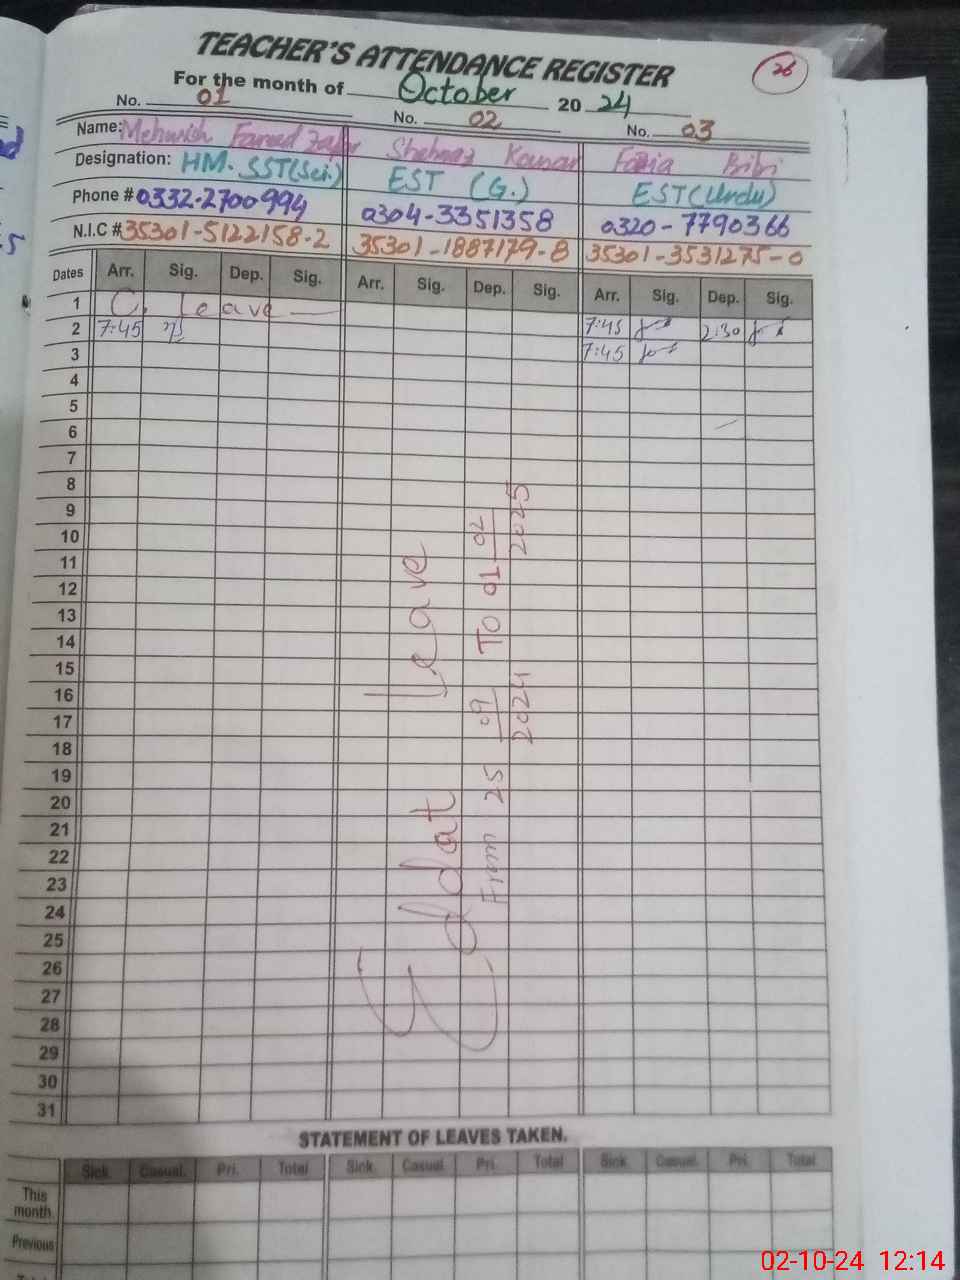 TEACHER'S ATTENDANCE REGISTER
26
For the month of October 2024
No. 01 No. 02 No. 03
Name: Mehwish Fareed Zafar Shehnaz Kousar Fozia Bibi
Designation: HM. SST(Sci.) EST (G.) EST(Urdu)
Phone # 0332-2700994 0304-3351358 0320-7790366
N.I.C # 35301-5122158-2 35301-1887179-8 35301-3531275-0
Dates Arr. Sig. Dep. Sig. Arr. Sig. Dep. Sig. Arr. Sig. Dep. Sig.
1 C. Leave
2 7:45 7:45 2:30
3 7:45
4
5
6
7
8
9
10
11
12
13
14
15
16
17
18
19
20
21
22
23
24
25
26
27
28
29
30
31
Eddat Leave
From 25 09 2024 To 01 02 2025
STATEMENT OF LEAVES TAKEN.
Sink Casual. Pri. Total Sink Casual Pri. Total Sink Casual. Pri. Total
This month
Previous
02-10-24 12:14